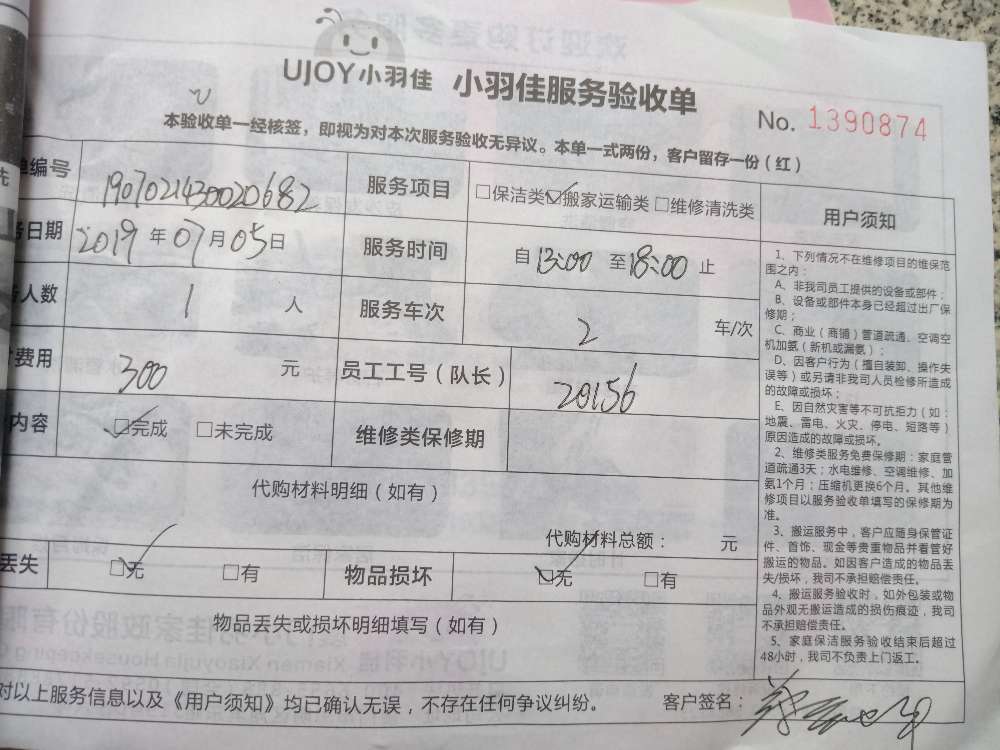 UJOY小羽佳 小羽佳服务验收单
No. 1390874
本验收单一经核签，即视为对本次服务验收无异议。本单一式两份，客户留存一份（红）
单编号 1907021430020682 服务项目 □保洁类☑搬家运输类□维修清洗类
务日期 2019年07月05日 服务时间 自13:00至18:00止
务人数 1 人 服务车次 2 车/次
费用 300 元 员工工号（队长） 20156
内容 ☑完成 □未完成 维修类保修期
代购材料明细（如有）
代购材料总额： 元
丢失 ☑无 □有 物品损坏 ☑无 □有
物品丢失或损坏明细填写（如有）
对以上服务信息以及《用户须知》均已确认无误，不存在任何争议纠纷。 客户签名：
用户须知
1、下列情况不在维修项目的维保范
围之内：
A、非我司员工提供的设备或部件；
B、设备或部件本身已经超过出厂保
修期；
C、商业（商铺）管道疏通、空调空
机加氨（新机或漏氨）；
D、因客户行为（擅自装卸、操作失
误等）或另请非我司人员检修所造成
的故障或损坏；
E、因自然灾害等不可抗拒力（如：
地震、雷电、火灾、停电、短路等）
原因造成的故障或损坏。
2、维修类服务免费保修期：家庭管
道疏通3天；水电维修、空调维修、加
氨1个月；压缩机更换6个月。其他维
修项目以服务验收单填写的保修期为
准。
3、搬运服务中，客户应随身保管证
件、首饰、现金等贵重物品并看管好
搬运的物品。如因客户造成的物品丢
失/损坏，我司不承担赔偿责任。
4、搬运服务验收时，如外包装或物
品外观无搬运造成的损伤痕迹，我司
不承担赔偿责任。
5、家庭保洁服务验收结束后超过
48小时，我司不负责上门返工。